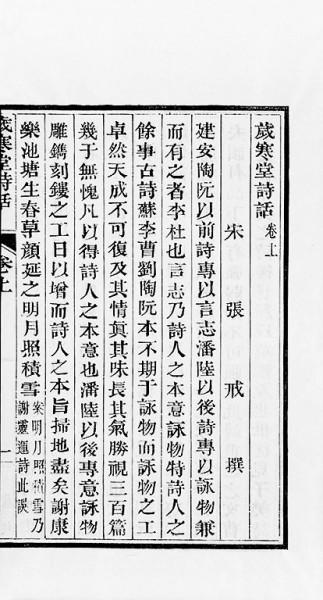 歲寒堂詩話卷上
宋張戒撰
建安陶阮以前詩專以言志潘陸以後詩專以詠物兼
而有之者李杜也言志乃詩人之本意詠物特詩人之
餘事古詩蘇李曹劉陶阮本不期于詠物而詠物之工
卓然天成不可復及其情眞其味長其氣勝視三百篇
幾于無愧凡以得詩人之本意也潘陸以後專意詠物
雕鐫刻鏤之工日以增而詩人之本旨掃地盡矣謝康
樂池塘生春草顏延之明月照積雪
案明月照積雪乃
謝靈運詩此誤
歲寒堂詩話
卷上
一